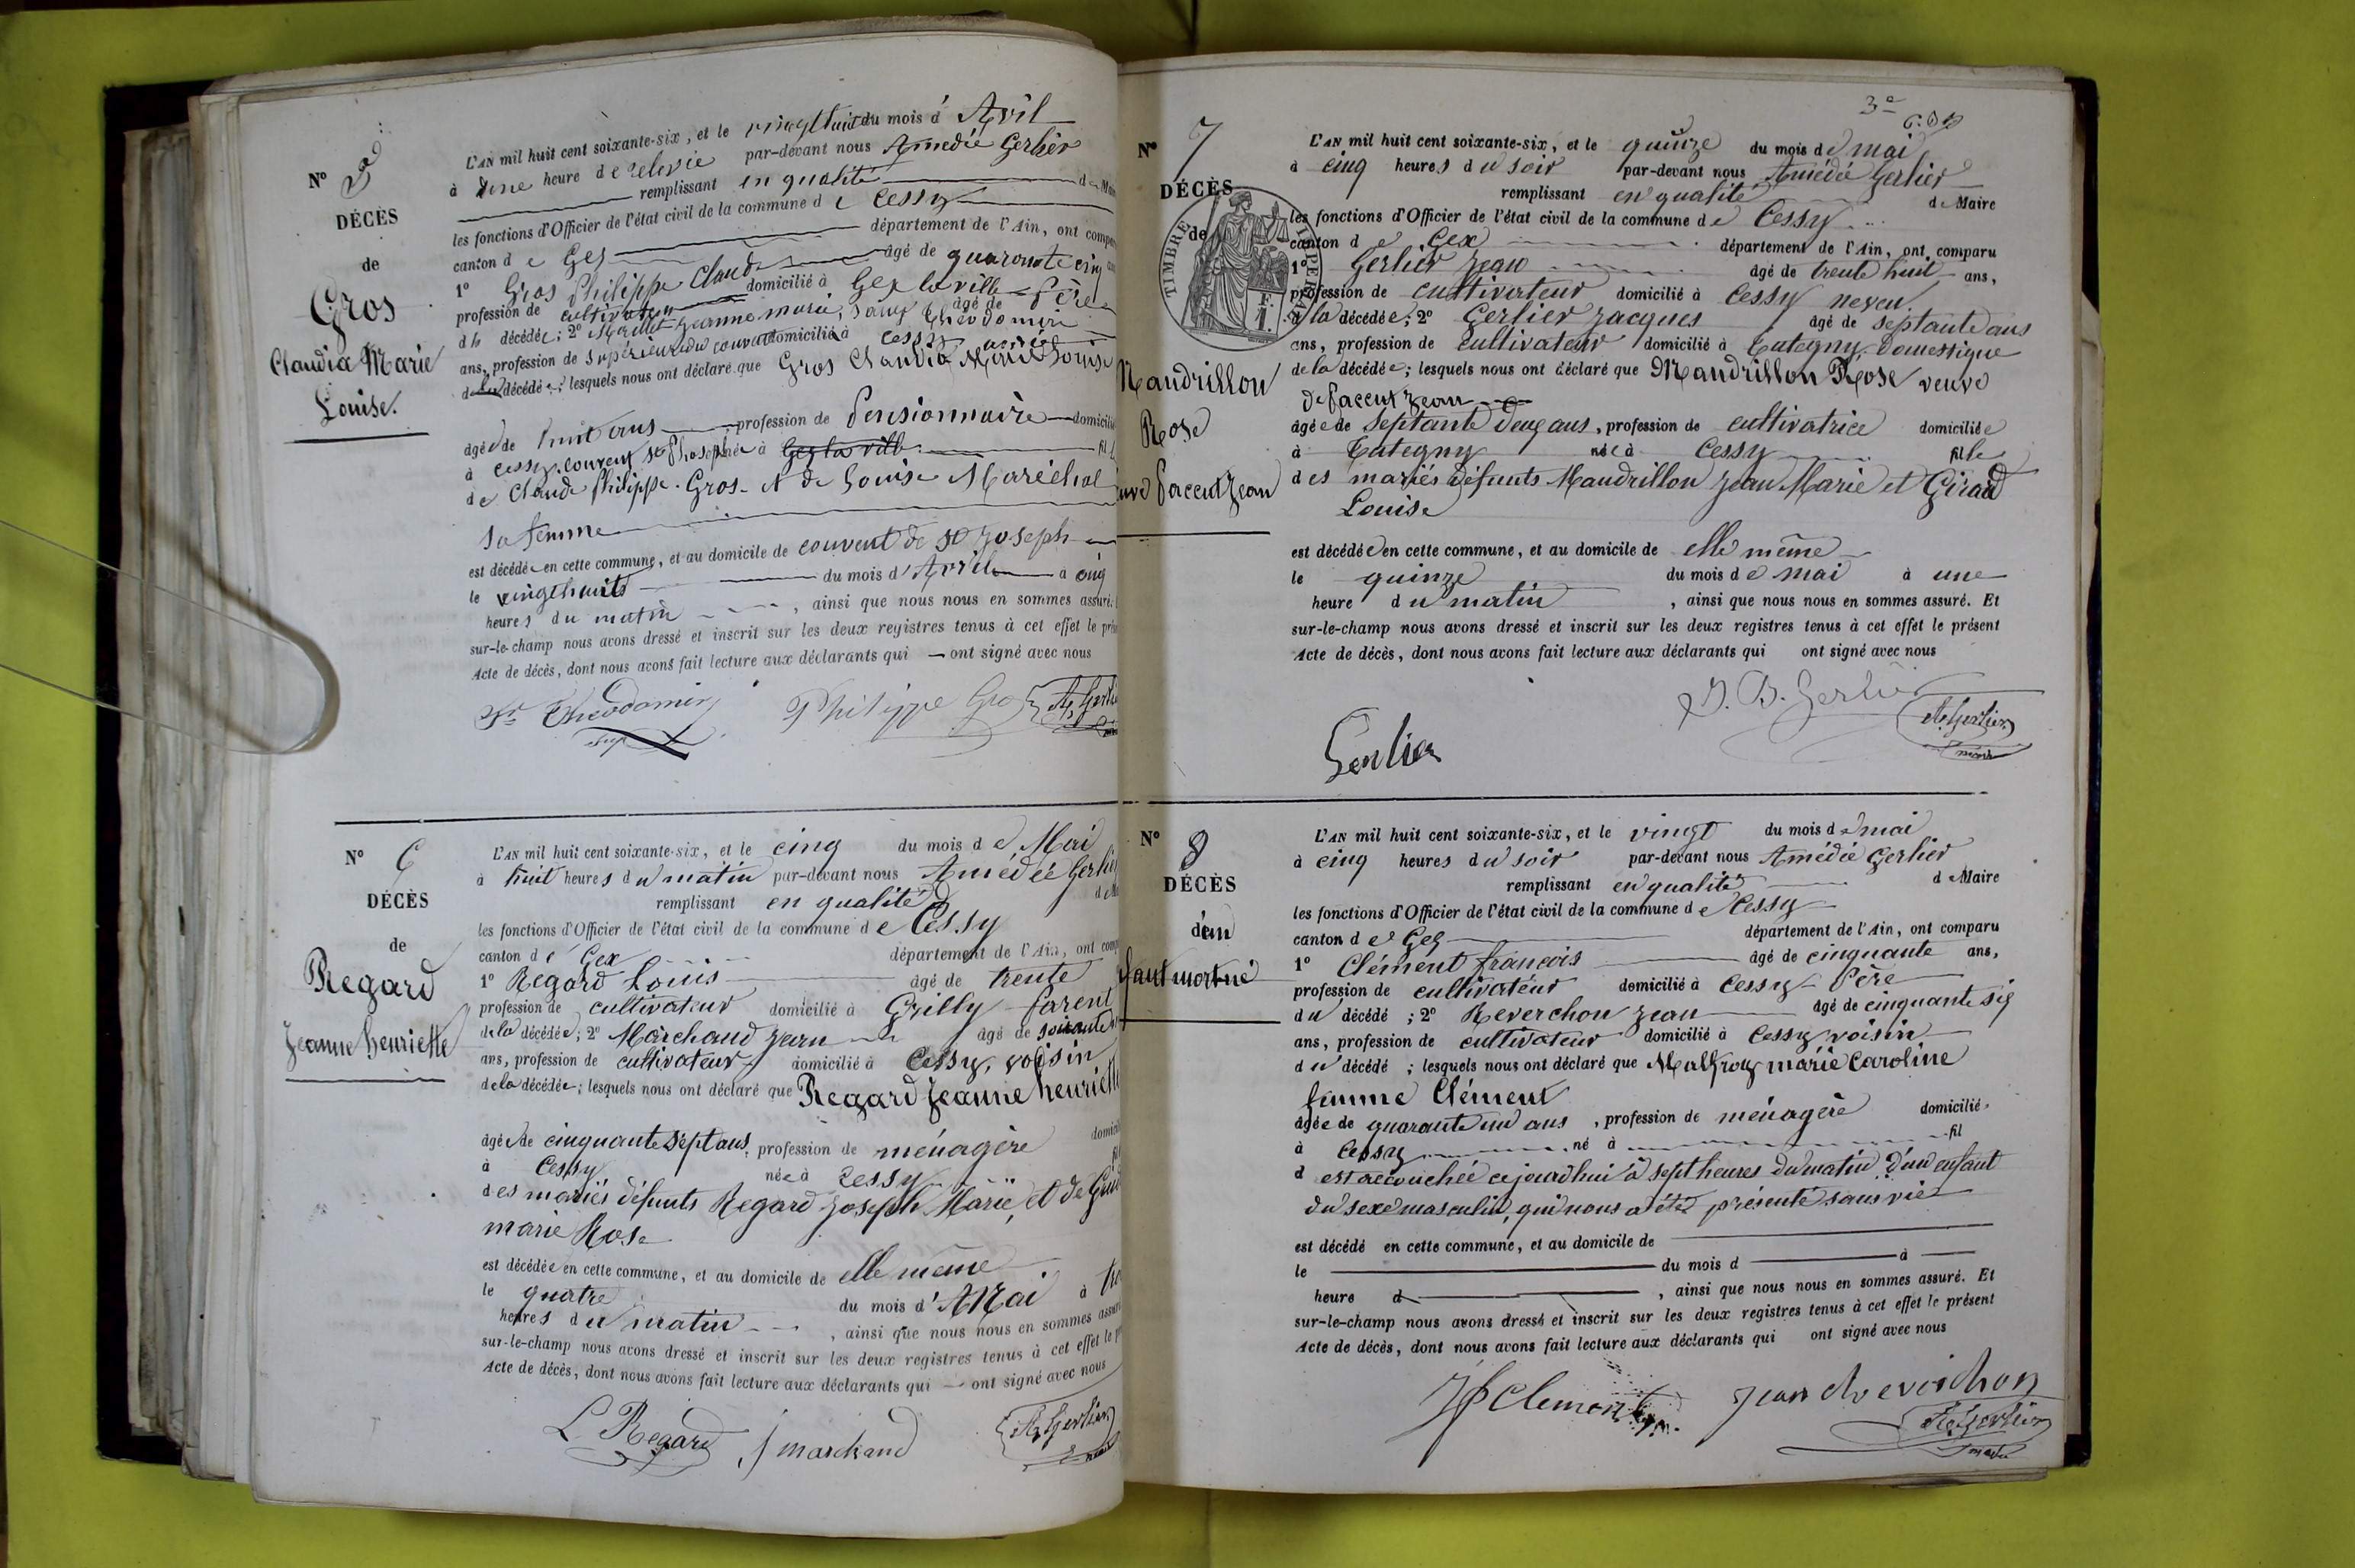 N° 5
DÉCÈS
de
Gros
Claudia Marie
Louise.
L'AN mil huit cent soixante-six, et le vingt huit du mois d' Avril
à une heure de relevée par-devant nous Amedée Gerlier
remplissant en qualité de
les fonctions d'Officier de l'état civil de la commune d e Cessy
canton d e Gex département de l'Ain, ont
1° Gros Philippe Claude âgé de quarante cinq
profession de cultivateur domicilié à Gex la ville Père
d la décédée; 2° Jeanne marie, Sœur Théodomir âgé de
ans, profession de Supérieure du couvent domicilié à Cessy
décédé; lesquels nous ont déclaré que Gros Claudia Marie Louise
âgée de huit ans profession de Pensionnaire
à Cessy couvent St Joseph née à Gex la ville
de Claude Philippe Gros et de Louise Maréchal
sa femme
est décédée en cette commune, et au domicile de couvent de St Joseph
le vingt huit du mois d'Avril à cinq
heures du matin, ainsi que nous nous en sommes assuré.
sur-le-champ nous avons dressé et inscrit sur les deux registres tenus à cet effet le
Acte de décès, dont nous avons fait lecture aux déclarants qui ont signé avec nous
Sr Théodomir
Philippe Gros
sup
N° 6
DÉCÈS
de
Regard
Jeanne henriette
L'AN mil huit cent soixante-six, et le cinq du mois d e Mai
à huit heures du matin par-devant nous Amédée
remplissant en qualité
les fonctions d'Officier de l'état civil de la commune d e Cessy
canton d e Gex département de l'Ain, ont
1° Regard Louis âgé de trente
profession de cultivateur domicilié à Grilly parent
de la décédée; 2° Marchand Jean âgé de soixante
ans, profession de cultivateur domicilié à Cessy, voisin
de la décédée; lesquels nous ont déclaré que Regard Jeanne henriette
âgée de cinquante sept ans, profession de ménagère
à Cessy née à Cessy
des mariés défunts Regard Joseph Marie, et de
marie Rose
est décédée en cette commune, et au domicile de elle même
le quatre du mois d' Mai à
heures du matin, ainsi que nous nous en sommes
sur-le-champ nous avons dressé et inscrit sur les deux registres tenus à cet effet le
Acte de décès, dont nous avons fait lecture aux déclarants qui ont signé avec nous
L. Regard
J marchand
A. Gerlier
3e
N° 7
DÉCÈS
de
Mandrillon
Rose
TIMBRE
L'AN mil huit cent soixante-six, et le quinze du mois de mai
à cinq heures du soir par-devant nous Amédée Gerlier
remplissant en qualité de Maire
les fonctions d'Officier de l'état civil de la commune de Cessy
canton d e Gex département de l'Ain, ont comparu
1° Gerlier Jean âgé de trente huit ans,
profession de cultivateur domicilié à Cessy neveu
de la décédée; 2° Gerlier Jacques âgé de septante ans
ans, profession de cultivateur domicilié à Tutegny. Domestique
de la décédée; lesquels nous ont déclaré que Mandrillon Rose veuve
de Jean
âgée de septante deux ans, profession de cultivatrice domiciliée
à Tutegny née à Cessy fille
des mariés défunts Mandrillon Jean Marie et Girod
Louise
est décédée en cette commune, et au domicile de elle même
le quinze du mois de mai à une
heure du matin, ainsi que nous nous en sommes assuré. Et
sur-le-champ nous avons dressé et inscrit sur les deux registres tenus à cet effet le présent
Acte de décès, dont nous avons fait lecture aux déclarants qui ont signé avec nous
Gerlier
A. Gerlier
maire
Gerlier
N° 8
DÉCÈS
d'un
fant mort né
L'AN mil huit cent soixante-six, et le vingt du mois de mai
à cinq heures du soir par-devant nous Amédée Gerlier
remplissant en qualité de Maire
les fonctions d'Officier de l'état civil de la commune de Cessy
canton d e Gex département de l'Ain, ont comparu
1° Clément françois âgé de cinquante ans,
profession de cultivateur domicilié à Cessy Père
du décédé; 2° Reverchon Jean âgé de cinquante six
ans, profession de cultivateur domicilié à Cessy voisin
du décédé; lesquels nous ont déclaré que marie Caroline
femme Clément
âgée de quarante un ans, profession de ménagère domicilié
à Cessy né à fil
d est accouchée cejourd'hui à sept heures du matin d'un enfant
du sexe masculin, qui nous a été présenté sans vie
est décédé en cette commune, et au domicile de
le du mois d à
heure d, ainsi que nous nous en sommes assuré. Et
sur-le-champ nous avons dressé et inscrit sur les deux registres tenus à cet effet le présent
Acte de décès, dont nous avons fait lecture aux déclarants qui ont signé avec nous
A. Gerlier
maire